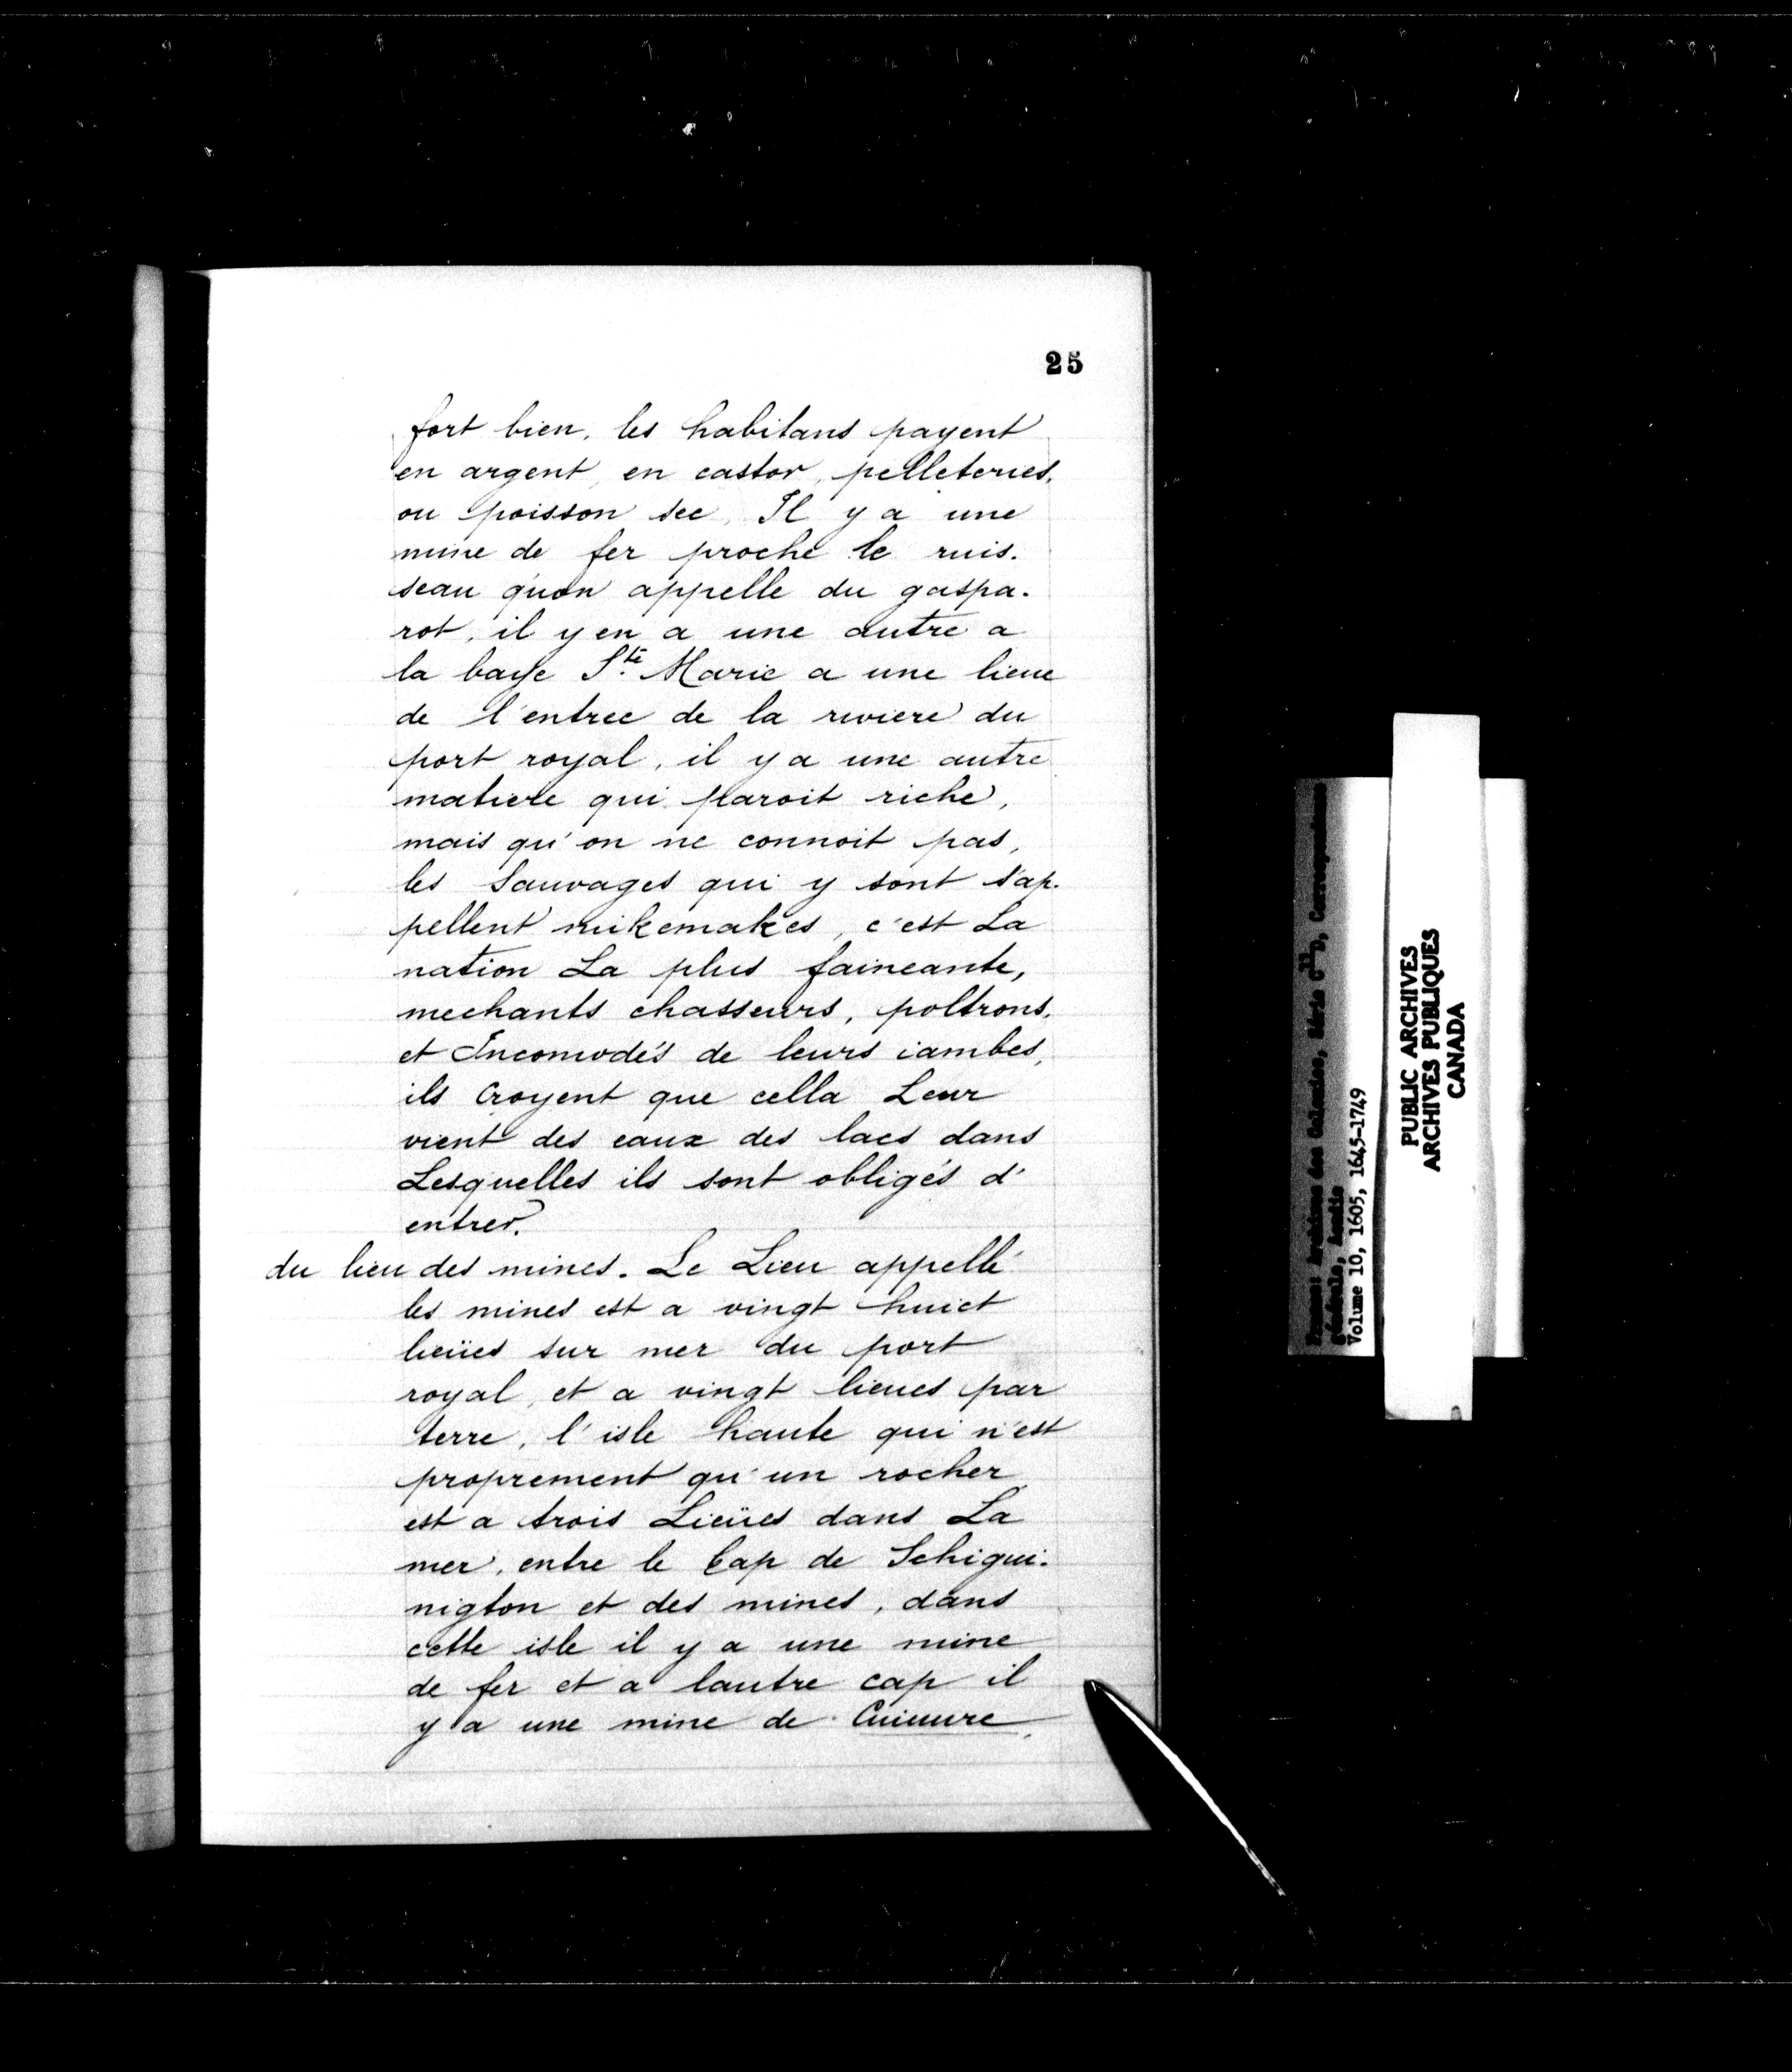 25
fort bien, les habitans payent
en argent, en castor, pelleteries,
ou poisson sec, Il y a une
mine de fer proche le ruis-
seau qu'on appelle du gaspa-
rot, il y en a une autre a
la baye Ste Marie a une lieue
de l'entree de la riviere du
port royal, il y a une autre
matiere qui paroit riche,
mais qu'on ne connoit pas,
les Sauvages qui y sont s'ap-
pellent mikemakes, c'est La
nation La plus faineante,
mechants chasseurs, poltrons,
et Incomodés de leurs iambes,
ils croyent que cella Leur
vient des eaux des lacs dans
Lesquelles ils sont obligés d'
entrer.
du lieu des mines. Le Lieu appellé
les mines est a vingt huict
lieües sur mer du port
royal, et a vingt lieues par
terre, l'isle haute qui n'est
proprement qu'un rocher
est a trois Lieües dans La
mer, entre le Cap de Schigui-
nigton et des mines, dans
cette isle il y a une mine
de fer et a lautre cap il
y a une mine de Cuiuure,
PUBLIC ARCHIVES
ARCHIVES PUBLIQUES
CANADA
France: Archives des Colonies, Série C11D, Correspondance
générale, Acadie
Volume 10, 1605, 1645-1749